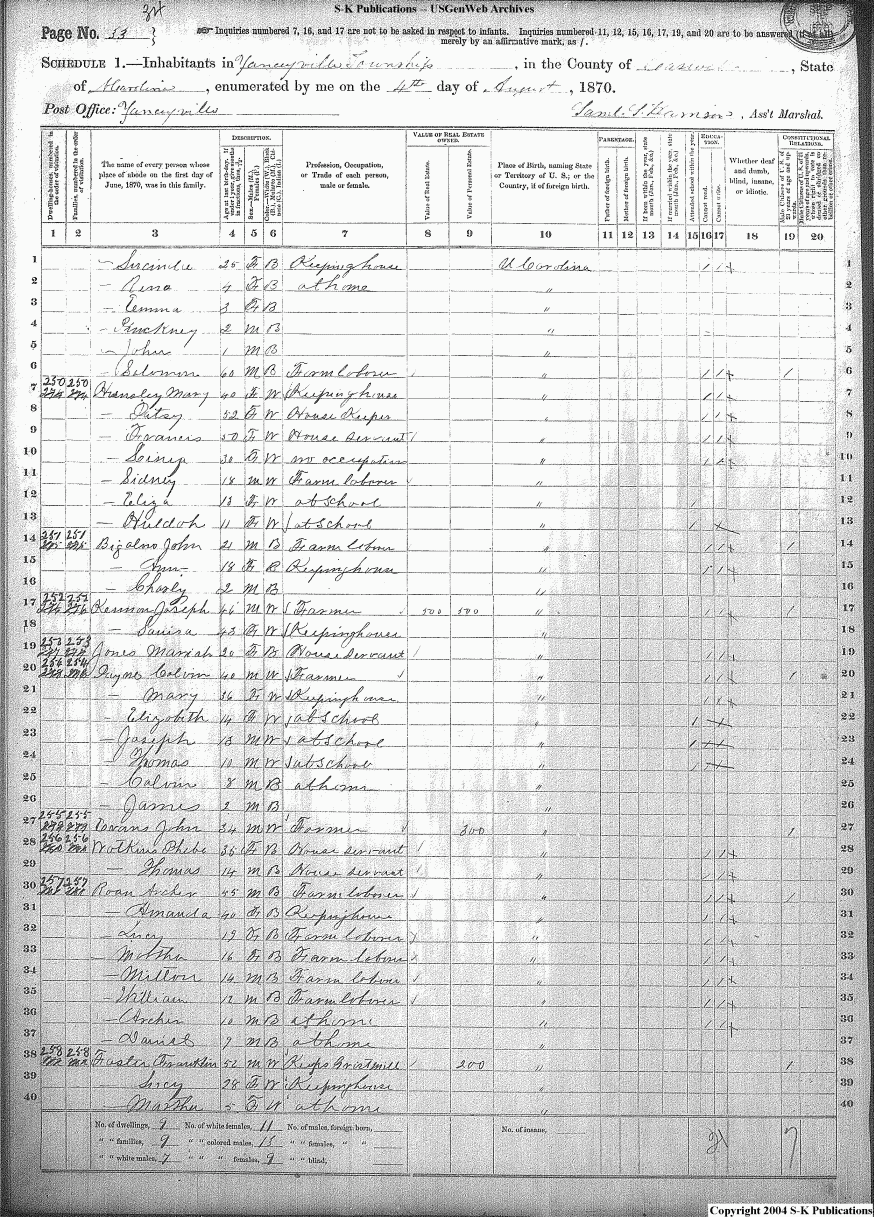 S-K Publications – USGenWeb Archives
Page No. 53
Inquiries numbered 7, 16, and 17 are not to be asked in respect to infants. Inquiries numbered 11, 12, 15, 16, 17, 19, and 20 are to be answered (if at all) merely by an affirmative mark, as /.
SCHEDULE 1.—Inhabitants in Yanceyville Township, in the County of Caswell, State
of Carolina, enumerated by me on the 4th day of August, 1870.
Post Office: Yanceyville Saml. Harrison, Ass't Marshal.
DESCRIPTION. VALUE OF REAL ESTATE OWNED. PARENTAGE. EDUCATION. CONSTITUTIONAL RELATIONS.
Dwelling-houses, numbered in the order of visitation.
Families, numbered in the order of visitation.
The name of every person whose place of abode on the first day of June, 1870, was in this family.
Profession, Occupation, or Trade of each person, male or female.
Value of Real Estate.
Value of Personal Estate.
Place of Birth, naming State or Territory of U. S.; or the Country, if of foreign birth.
Father of foreign birth.
Mother of foreign birth.
Attended school within the year.
Cannot read.
Cannot write.
Whether deaf and dumb, blind, insane, or idiotic.
1 2 3 4 5 6 7 8 9 10 11 12 13 14 15 16 17 18 19 20
1 — Lucinda 25 F B Keeping house N Carolina / / 1
2 — Rena 4 F B at home " 2
3 — Emma 3 F B " 3
4 — Pinckney 2 M B " 4
5 — John 1 M B " 5
6 — Solomon 60 M B Farm laborer " / / / 6
7 250 250 Hensley Mary 40 F W Keeping house " / / 7
8 — Patsy 52 F W House Keeper " / / 8
9 — Francis 50 F W House servant " / / 9
10 — 30 F W no occupation " / / 10
11 — Sidney 18 M W Farm laborer " 11
12 — Eliza 13 F W at School " / 12
13 — Huldah 11 F W at School " / 13
14 251 251 John 21 M B Farm laborer " / / / 14
15 — Ann 18 F B Keeping house " / / 15
16 — Charly 2 M B " 16
17 252 252 Kennon Joseph 46 M W Farmer 500 500 " / / / 17
18 — Louisa 43 F W Keeping house " 18
19 253 253 Jones Mariah 20 F B House servant " / / 19
20 254 254 Payne Calvin 40 M W Farmer " / / / 20
21 — Mary 36 F W Keeping house " / / 21
22 — Elizabeth 14 F W at School " / 22
23 — Joseph 13 M W at School " / 23
24 — Thomas 10 M W at School " / 24
25 — Calvin 8 M B at home " 25
26 — James 2 M B " 26
27 255 255 Evans John 34 M W Farmer 300 " / 27
28 256 256 Watkins Phebe 35 F B House servant " / / 28
29 — Thomas 14 M B House servant " / / 29
30 257 257 Roan Archer 45 M B Farm laborer " / / / 30
31 — Amanda 40 F B Keeping house " / / 31
32 — Lucy 19 F B Farm laborer " / / 32
33 — Martha 16 F B Farm laborer " / / 33
34 — Milton 14 M B Farm laborer " / / 34
35 — William 12 M B Farm laborer " / / 35
36 — Archer 10 M B at home " / / 36
37 — Daniel 7 M B at home " 37
38 258 258 Foster Franklin 52 M W Keeps Gristmill 200 " / 38
39 Lucy 28 F W Keeping house " 39
40 — Martha 5 F W at home " 40
No. of dwellings, 9 No. of white females, 11 No. of males, foreign born, No. of insane,
" " families, 9 " " colored males, 13 " " females, " "
" " white males, 7 " " " females, 9 " " blind,
Copyright 2004 S-K Publications